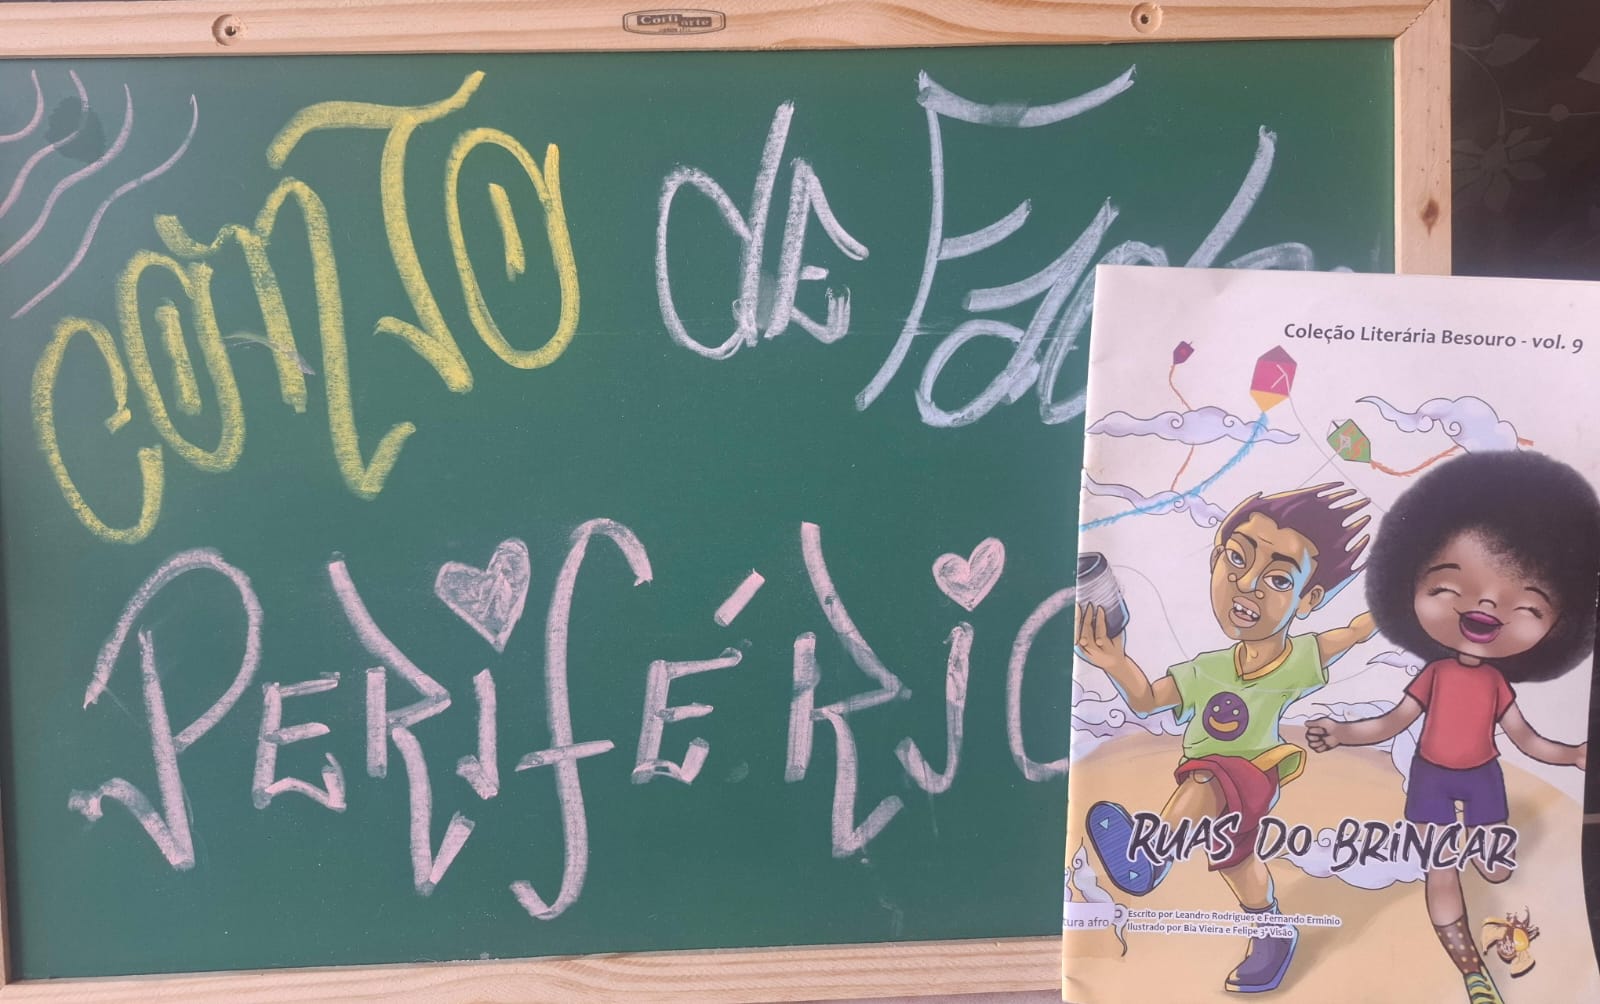 Corfiarte
CONTO de Fad
PERIFÉRIC
Coleção Literária Besouro - vol. 9
RUAS DO BRINCAR
tura afro
Escrito por Leandro Rodrigues e Fernando Erminio
Ilustrado por Bia Vieira e Felipe 3ª Visão